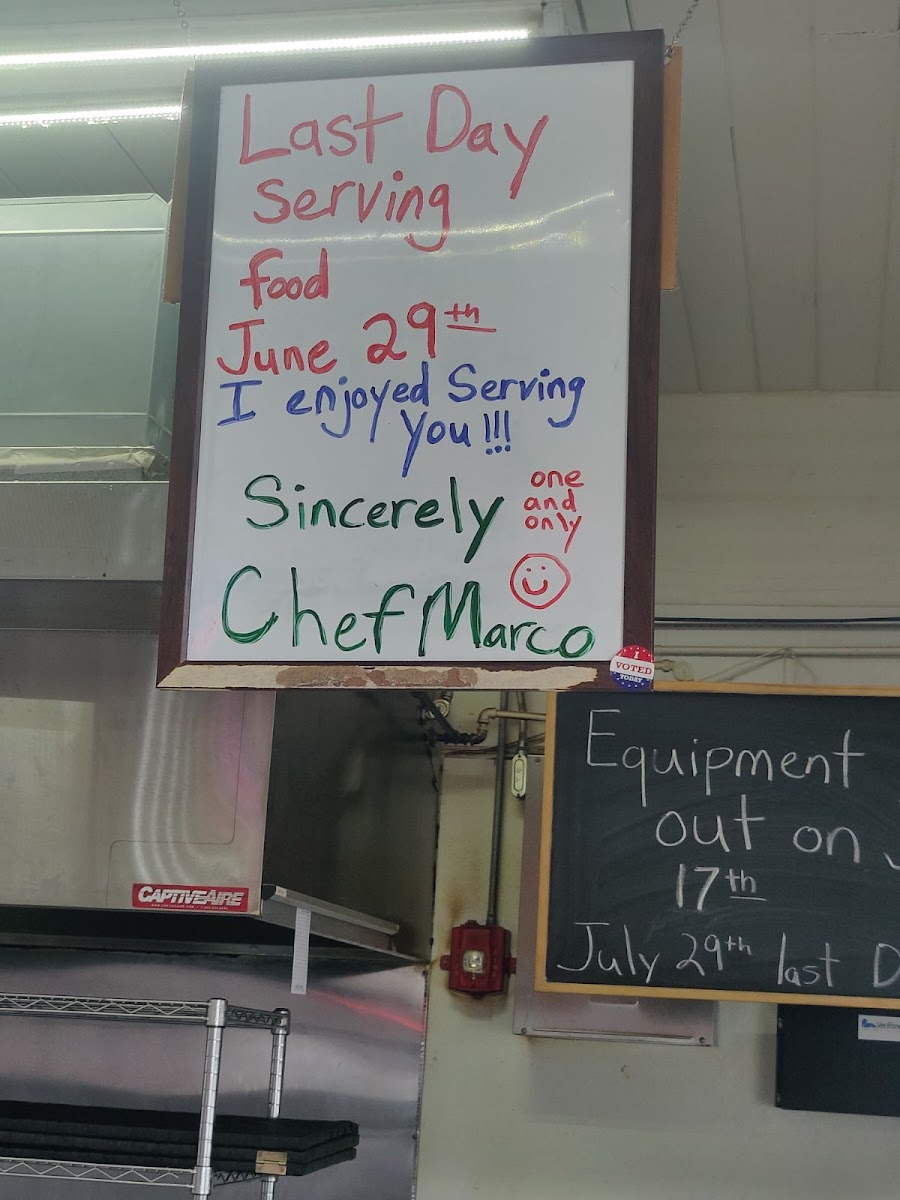 Last Day
Serving
food
June 29th
I enjoyed Serving
you!!!
Sincerely
one
and
only
Chef Marco
I
VOTED
TODAY
Equipment
out on
17th
July 29th last
CAPTIVEAIRE